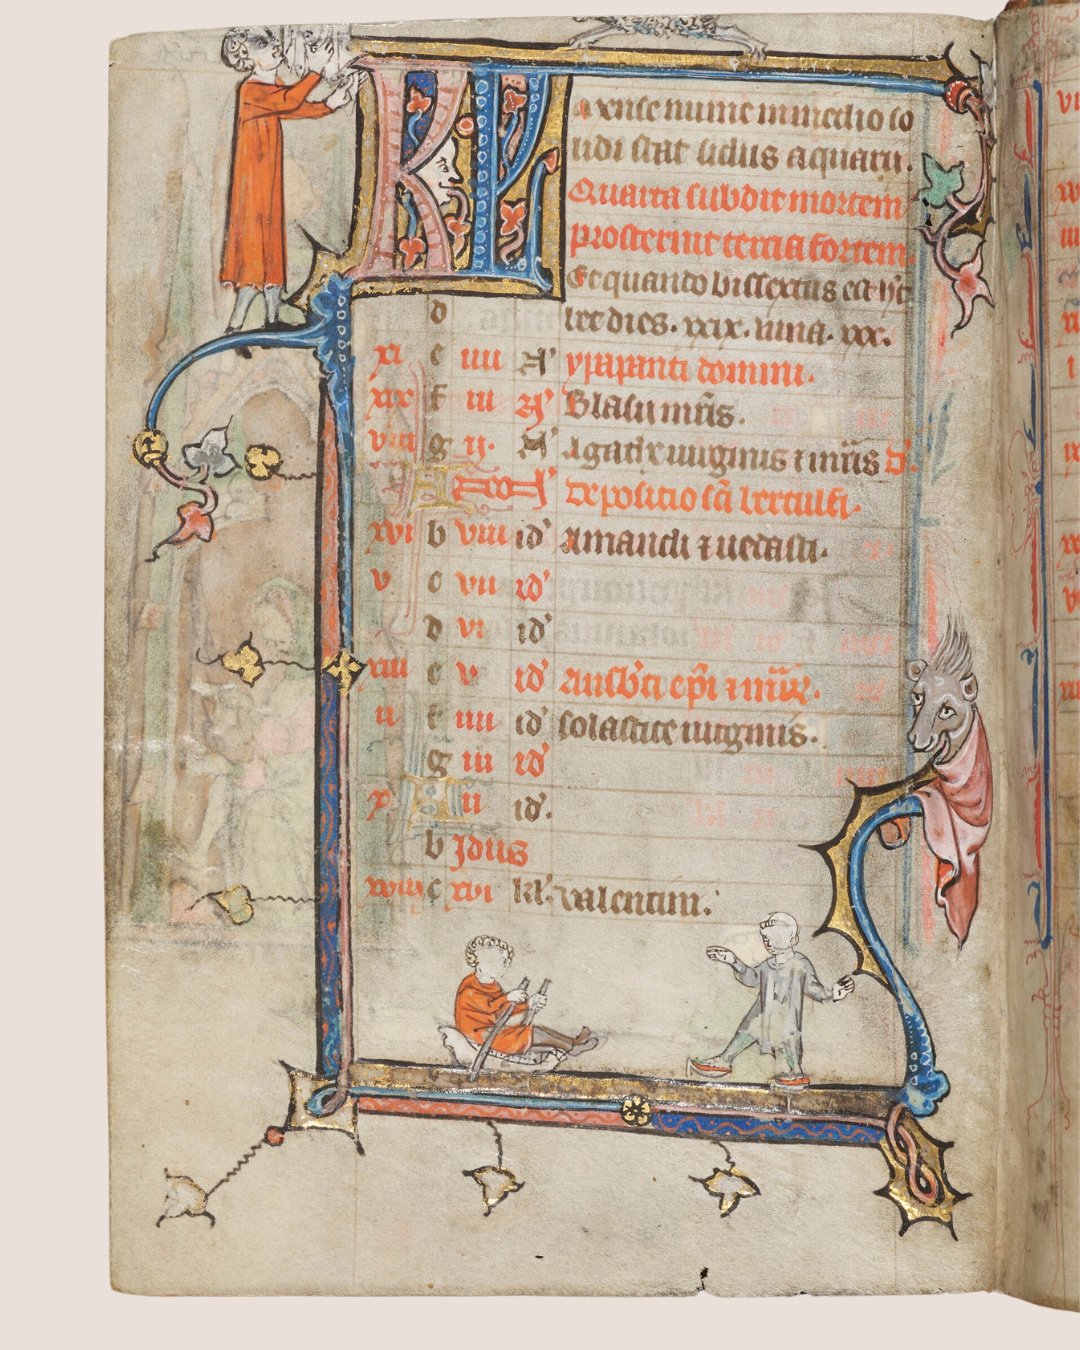 KL
axense numine in medio so
lidi stat sidus aquarii.
Quarta subdit mortem
prosternit tercia fortem
Et quando bissextus est h't
d let dies. xxix. luna. xxx.
xi e iiii N' ypapanti domini.
xix f iii N' Blasii mr̄is.
viii g ii. N' Agathe uirginis ⁊ mr̄is
A Non' depositio sc̄i bertulfi.
xvi b viii id' Amandi ⁊ uedasti.
v c vii id'
d vi id'
xiii e v id' Ausb'ti ep̄i ⁊
ii f iiii id' scolastice uirginis.
g iii id'
x A ii id'.
b Idus
xviii c xvi kl'. valentini.